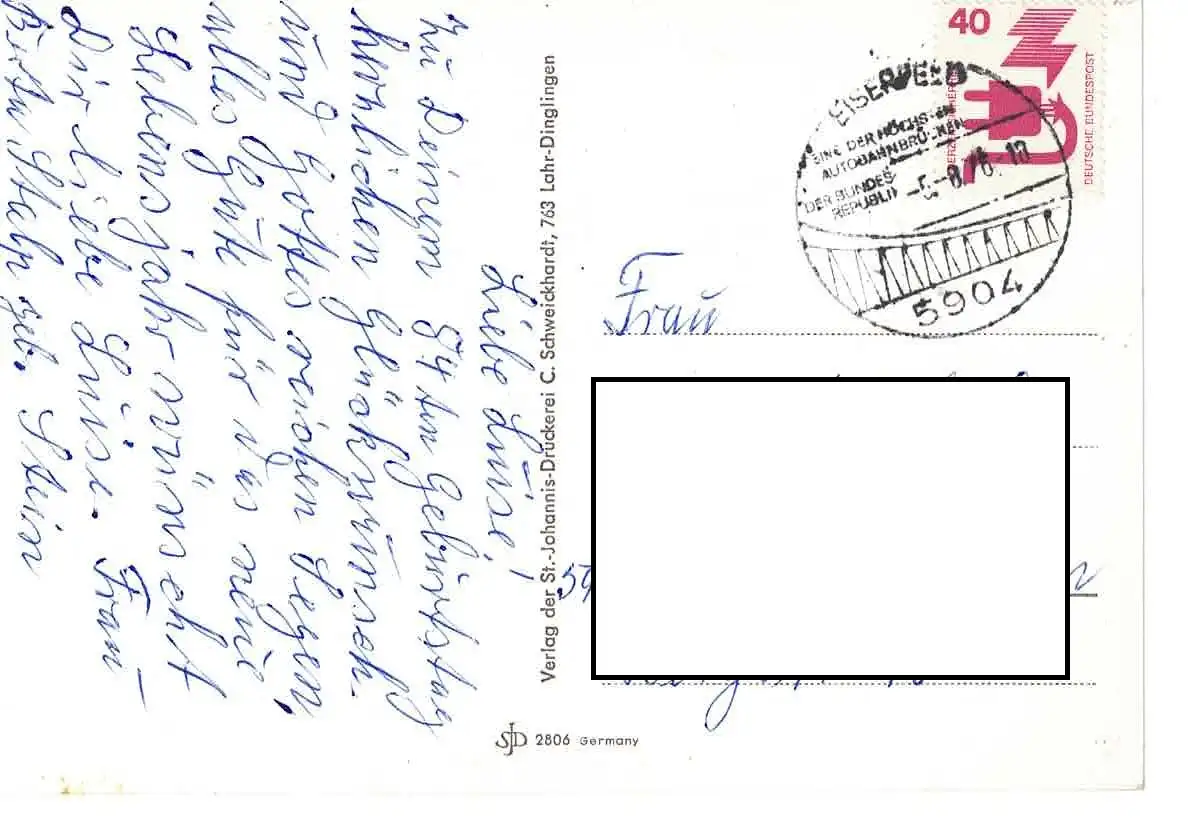 Liebe Luise!
Zu Deinem 84ten Geburtstag
herzlichen Glückwunsch.
Und Gottes reichen Segen,
alles Gute für das neue
Lebensjahr wünscht
Dir liebe Luise. Frau-
geb. Stein
Verlag der St.-Johannis-Druckerei C. Schweickhardt, 763 Lahr-Dinglingen
SJD 2806 Germany
40
DEUTSCHE BUNDESPOST
EISERFELD
EINE DER HÖCHSTEN
AUTOBAHNBRÜCKEN
DER BUNDES-
REPUBLIK
5904
Frau
59